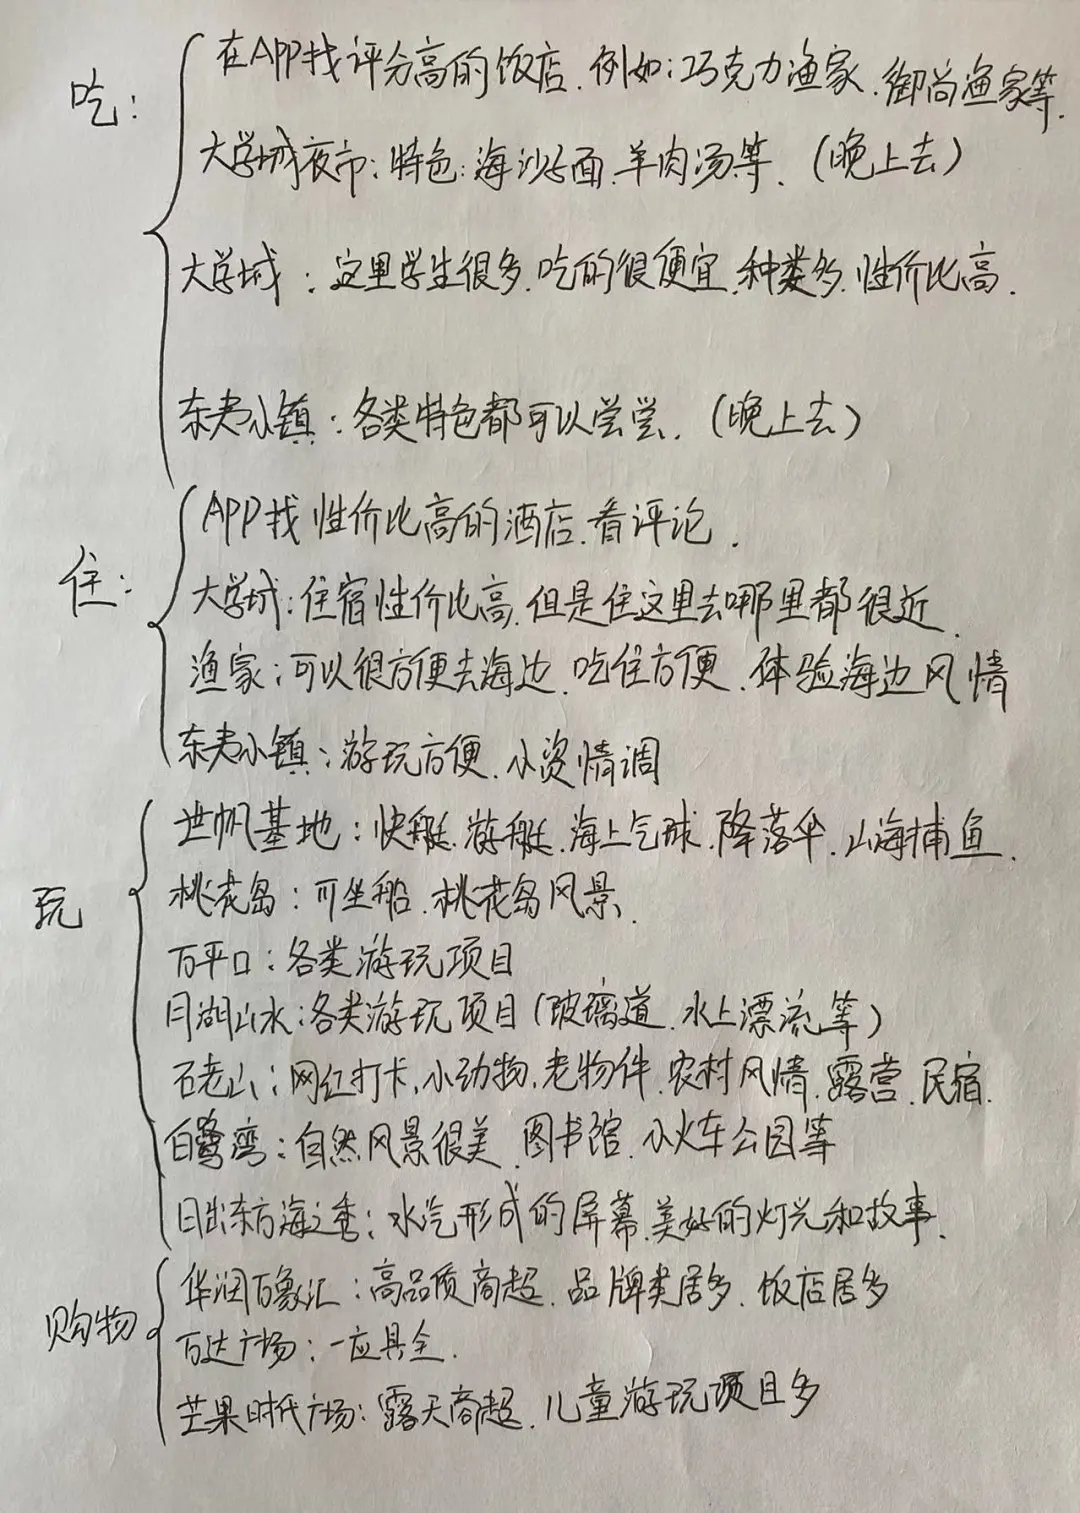 吃：
在APP找评分高的饭店、例如：巧克力渔家、御尚渔家等.
大学城夜市：特色：海沙子面、羊肉汤等、（晚上去）
大学城：这里学生很多、吃的很便宜、种类多、性价比高.
东夷小镇：各类特色都可以尝尝、（晚上去）
住：
APP找性价比高的酒店、看评论.
大学城：住宿性价比高、但是住这里去哪里都很近、
渔家：可以很方便去海边、吃住方便、体验海边风情
东夷小镇：游玩方便、小资情调
玩
世帆基地：快艇、游艇、海上气球、降落伞、出海捕鱼、
桃花岛：可坐船、桃花岛风景、
万平口：各类游玩项目
月湖山水：各类游玩项目（玻璃道、水上漂流等）
石老山：网红打卡、小动物、老物件、农村风情、露营、民宿.
白鹭湾：自然风景很美、图书馆、小火车公园等
日出东方海之秀：水汽形成的屏幕、美好的灯光和故事、
购物
华润万象汇：高品质商超、品牌类居多、饭店居多
万达广场：一应具全.
芒果时代广场：露天商超、儿童游玩项目多